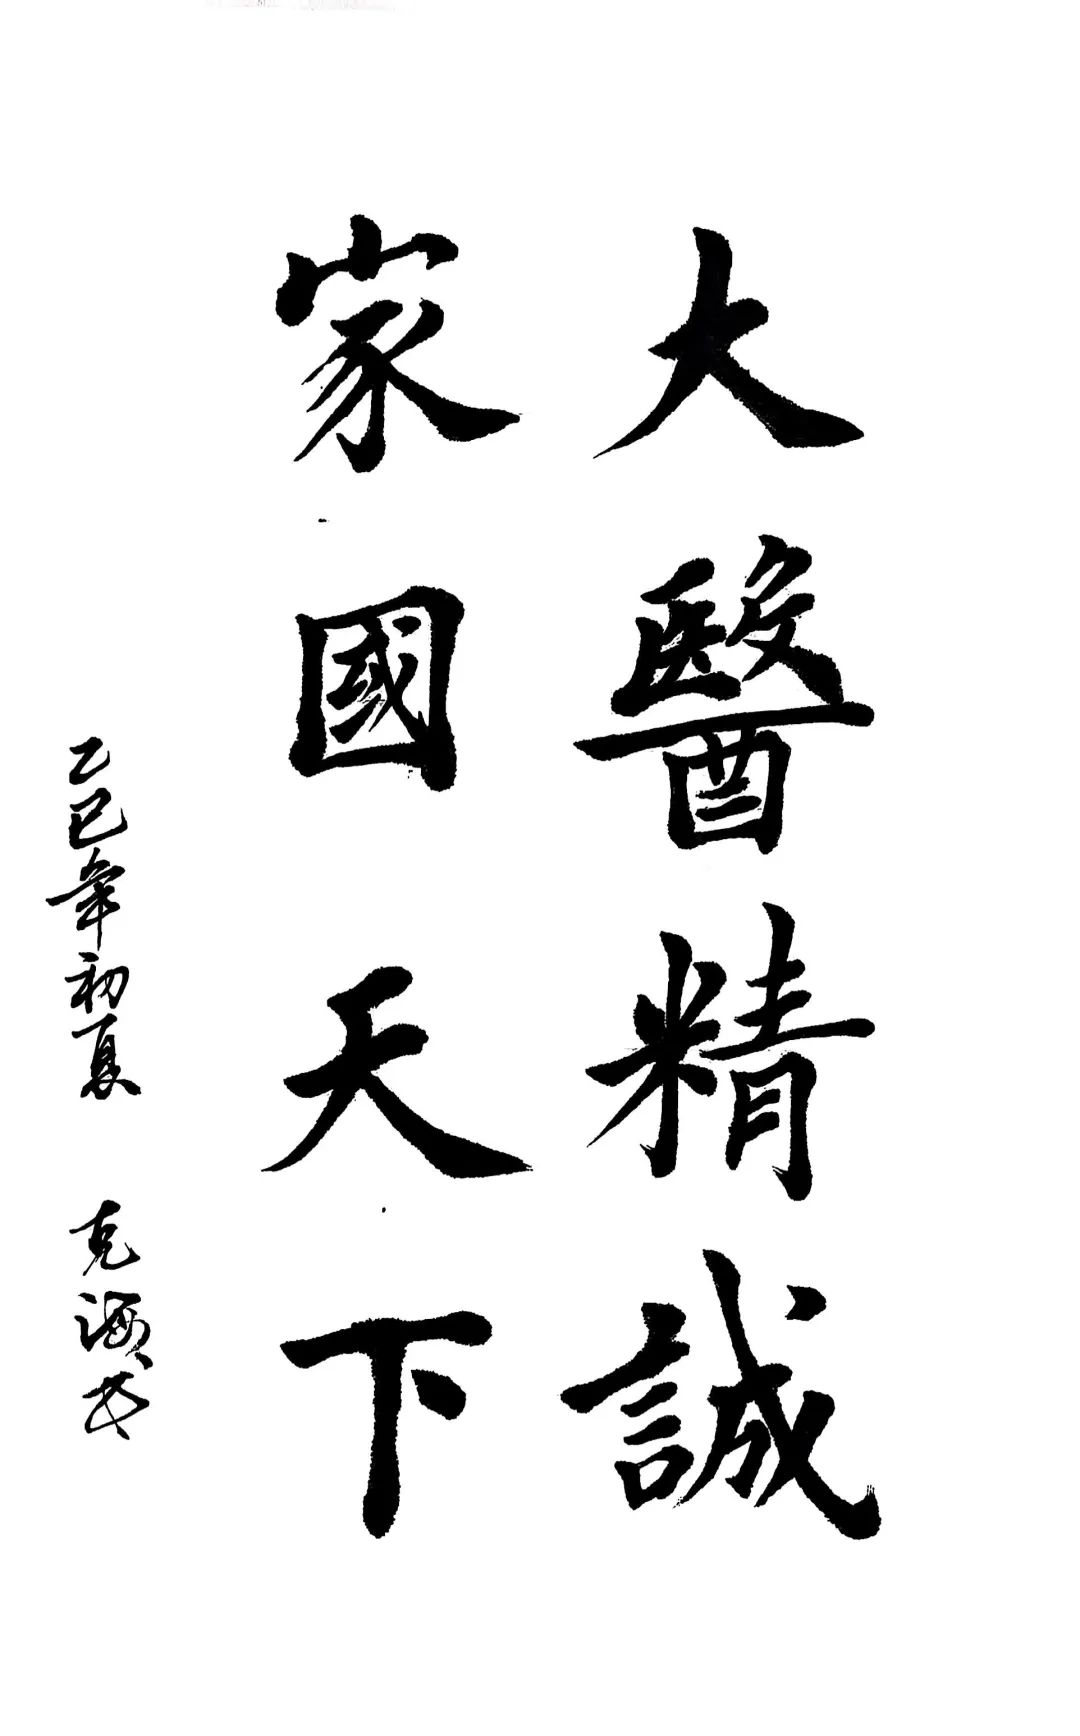 大醫精誠
家國天下
乙巳年初夏 克海书